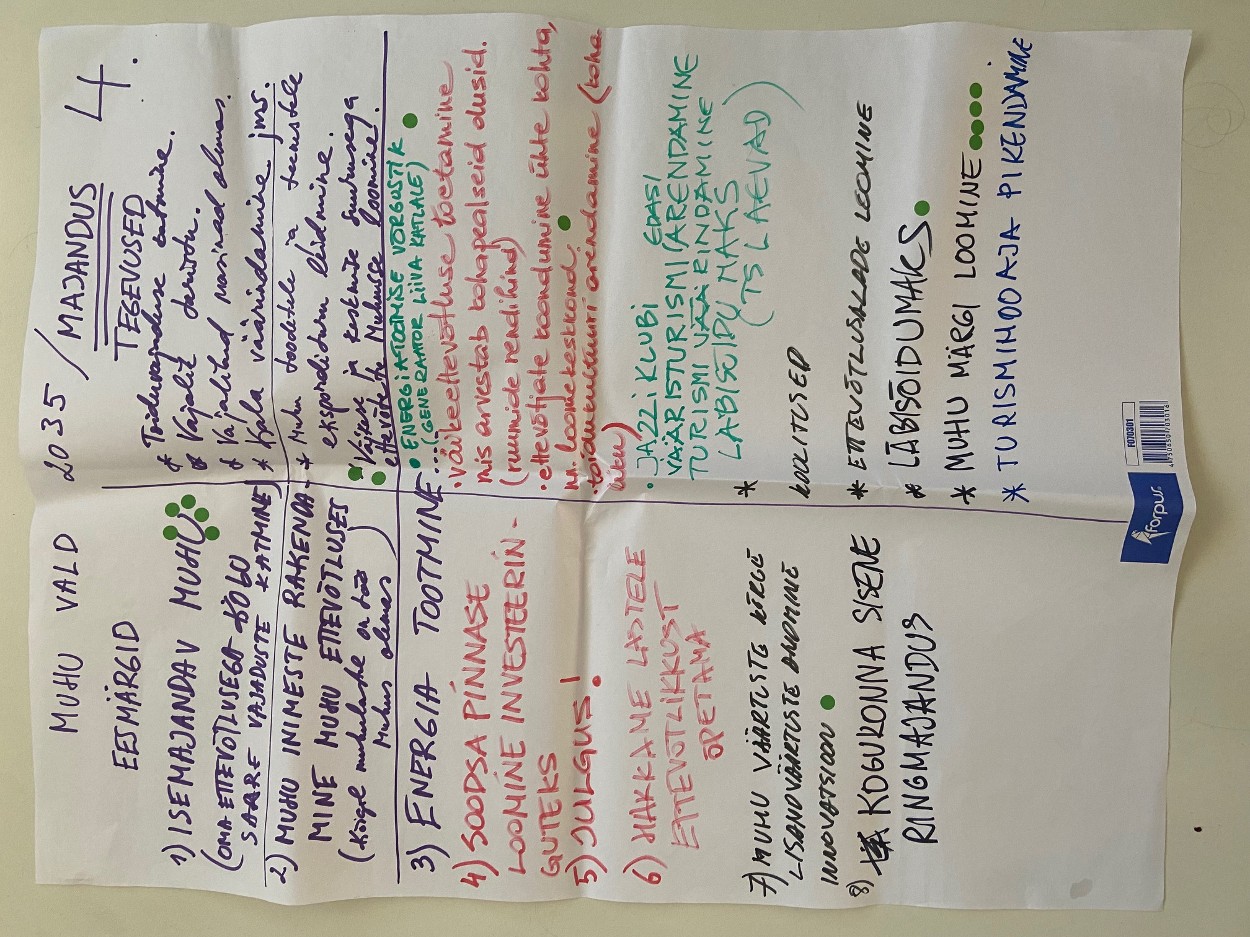 MUHU VALD 2035 / MAJANDUS 4.
EESMÄRGID
1) ISEMAJANDAV MUHU
(OMA ETTEVÕTLUSEGA KOGU
SAARE VAJADUSTE KATMINE)
2) MUHU INIMESTE RAKENDA-
MINE MUHU ETTEVÕTLUSES
(Kõigil muhulastel on töö
Muhus olemas)
3) ENERGIA TOOTMINE
4) SOODSA PINNASE
LOOMINE INVESTEERIN-
GUTEKS
5) JULGUS!
6) HAKKAME LASTELE
ETTEVÕTLIKKUST
ÕPETAMA
7) MUHU VÄÄRTUSTE KÕRGE
LISANDVÄÄRTUSTE ANDMINE
INNOVATSIOON
8) KOGUKONNA SISENE
RINGMAJANDUS
TEGEVUSED
* Toiduvarustuse
* Vajalik
* Vajalikud masinad olemas.
* Kala väärindamine jms.
* Muhu toodetele ja teenustele
ekspordituru leidmine.
Väikese ja keskmise suurusega
ettevõtete Muhusse loomine!
• ENERGIATOOTMISE VÕRGUSTIK
... (GENERAATOR LIIVA KATLALE)
• väikeettevõtluse toetamine
mis arvestab kohapealseid olusid.
(ruumide rendihind)
• ettevõtjate koondumine ühte kohta,
n. loomekeskkond
• toidukultuuri arendamine (koha
liku)
• JAZZIKLUBI EDASI
VÄÄRISTURISMI ARENDAMINE
TURISMI VÄÄRINDAMINE
LÄBISÕIDU MAKS
(TS LAEVAD)
*
KOOLITUSED
* ETTEVÕTLUSALADE LOOMINE
* LÄBISÕIDUMAKS
* MUHU MÄRGI LOOMINE
* TURISMIHOOAJA PIKENDAMINE
forpus
FO70301
4750650703016